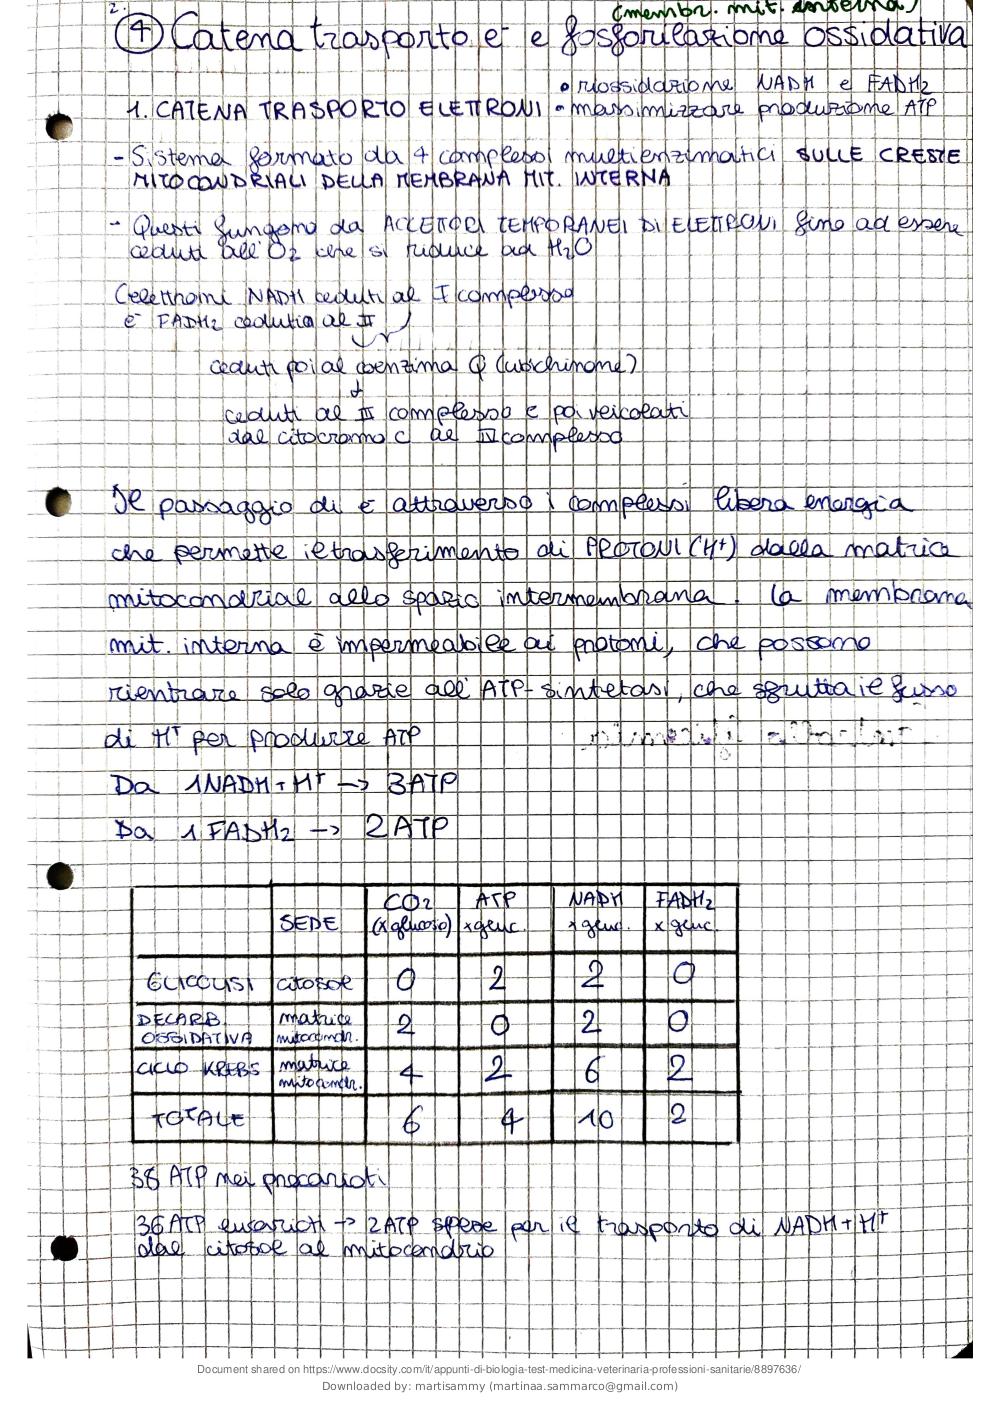 2.
(membr. mit. interna)
4 Catena trasporto e⁻ e fosforilazione ossidativa
• riossidazione NADH e FADH2
1. CATENA TRASPORTO ELETTRONI • massimizzare produzione ATP
- Sistema formato da 4 complessi multienzimatici SULLE CRESTE
MITOCONDRIALI DELLA MEMBRANA MIT. INTERNA
- Questi fungono da ACCETTORI TEMPORANEI DI ELETTRONI fino ad essere
ceduti all'O2 che si riduce ad H2O
Gli elettroni NADH ceduti al I complesso
e FADH2 ceduti al II
ceduti poi al coenzima Q (ubichinone)
ceduti al III complesso e poi veicolati
dal citocromo c al IV complesso
Il passaggio di e⁻ attraverso i complessi libera energia
che permette il trasferimento di PROTONI (H+) dalla matrice
mitocondriale allo spazio intermembrana. La membrana
mit. interna è impermeabile ai protoni, che possono
rientrare solo grazie all'ATP-sintetasi, che sfrutta il flusso
di H+ per produrre ATP
Da 1NADH+H+ -> 3ATP
Da 1 FADH2 -> 2ATP
SEDE CO2 (x glucosio) ATP x gluc. NADH x gluc. FADH2 x gluc.
GLICOLISI citosol 0 2 2 0
DECARB. OSSIDATIVA matrice mitocondr. 2 0 2 0
CICLO KREBS matrice mitocondr. 4 2 6 2
TOTALE 6 4 10 2
38 ATP nei procarioti
36 ATP eucarioti -> 2ATP spese per il trasporto di NADH+H+
dal citosol al mitocondrio
Document shared on https://www.docsity.com/it/appunti-di-biologia-test-medicina-veterinaria-professioni-sanitarie/8897636/
Downloaded by: martisammy (martinaa.sammarco@gmail.com)